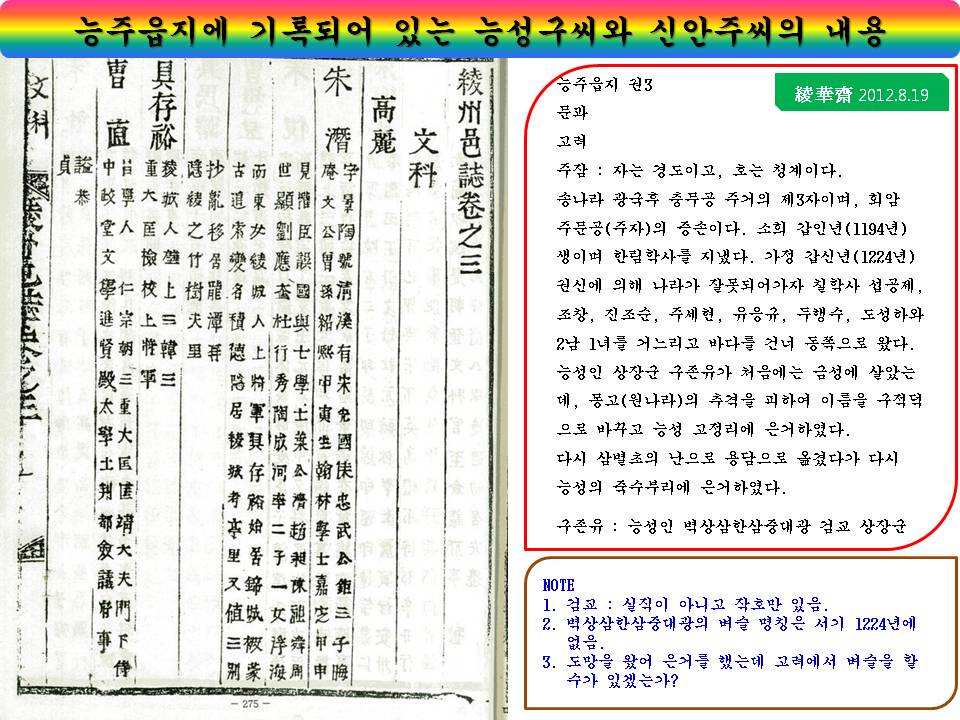 능주읍지에 기록되어 있는 능성구씨와 신안주씨의 내용
綾州邑誌卷之三
文科
高麗
朱 潛
字景陶號淸溪有宋光國侯忠武公鉅三子晦
庵文公曾孫紹熙甲寅生翰林學士嘉定甲申
見權臣誤國與七學士葉公濟趙昶陳祖舜周
世顯劉應奎杜行秀陶成河率二子一女浮海
而東女綾城人上將軍具存裕始居錦城被蒙
古道索變名積德隱居綾城考亭里又値三別
抄亂移居龍潭再
隱綾之竹樹夫里
具存裕
綾城人壁上三韓三
重大匡檢校上將軍
曺 直
昌寧人仁宗朝三重大匡匡靖大夫門下侍
中政堂文學進賢殿太學士判都僉議府事
諡恭
貞
文科
- 275 -
綾華齋 2012.8.19
능주읍지 권3
문과
고려
주잠 : 자는 경도이고, 호는 청계이다.
송나라 광국후 충무공 주거의 제3자이며, 회암
주문공(주자)의 증손이다. 소희 갑인년(1194년)
생이며 한림학사를 지냈다. 가정 갑신년(1224년)
권신에 의해 나라가 잘못되어가자 칠학사 섭공제,
조창, 진조순, 주세현, 유응규, 두행수, 도성하와
2남 1녀를 거느리고 바다를 건너 동쪽으로 왔다.
능성인 상장군 구존유가 처음에는 금성에 살았는
데, 몽고(원나라)의 추격을 피하여 이름을 구적덕
으로 바꾸고 능성 고정리에 은거하였다.
다시 삼별초의 난으로 용담으로 옮겼다가 다시
능성의 죽수부리에 은거하였다.
구존유 : 능성인 벽상삼한삼중대광 검교 상장군
NOTE
1. 검교 : 실직이 아니고 작호만 있음.
2. 벽상삼한삼중대광의 벼슬 명칭은 서기 1224년에
없음.
3. 도망을 왔어 은거를 했는데 고려에서 벼슬을 할
수가 있겠는가?